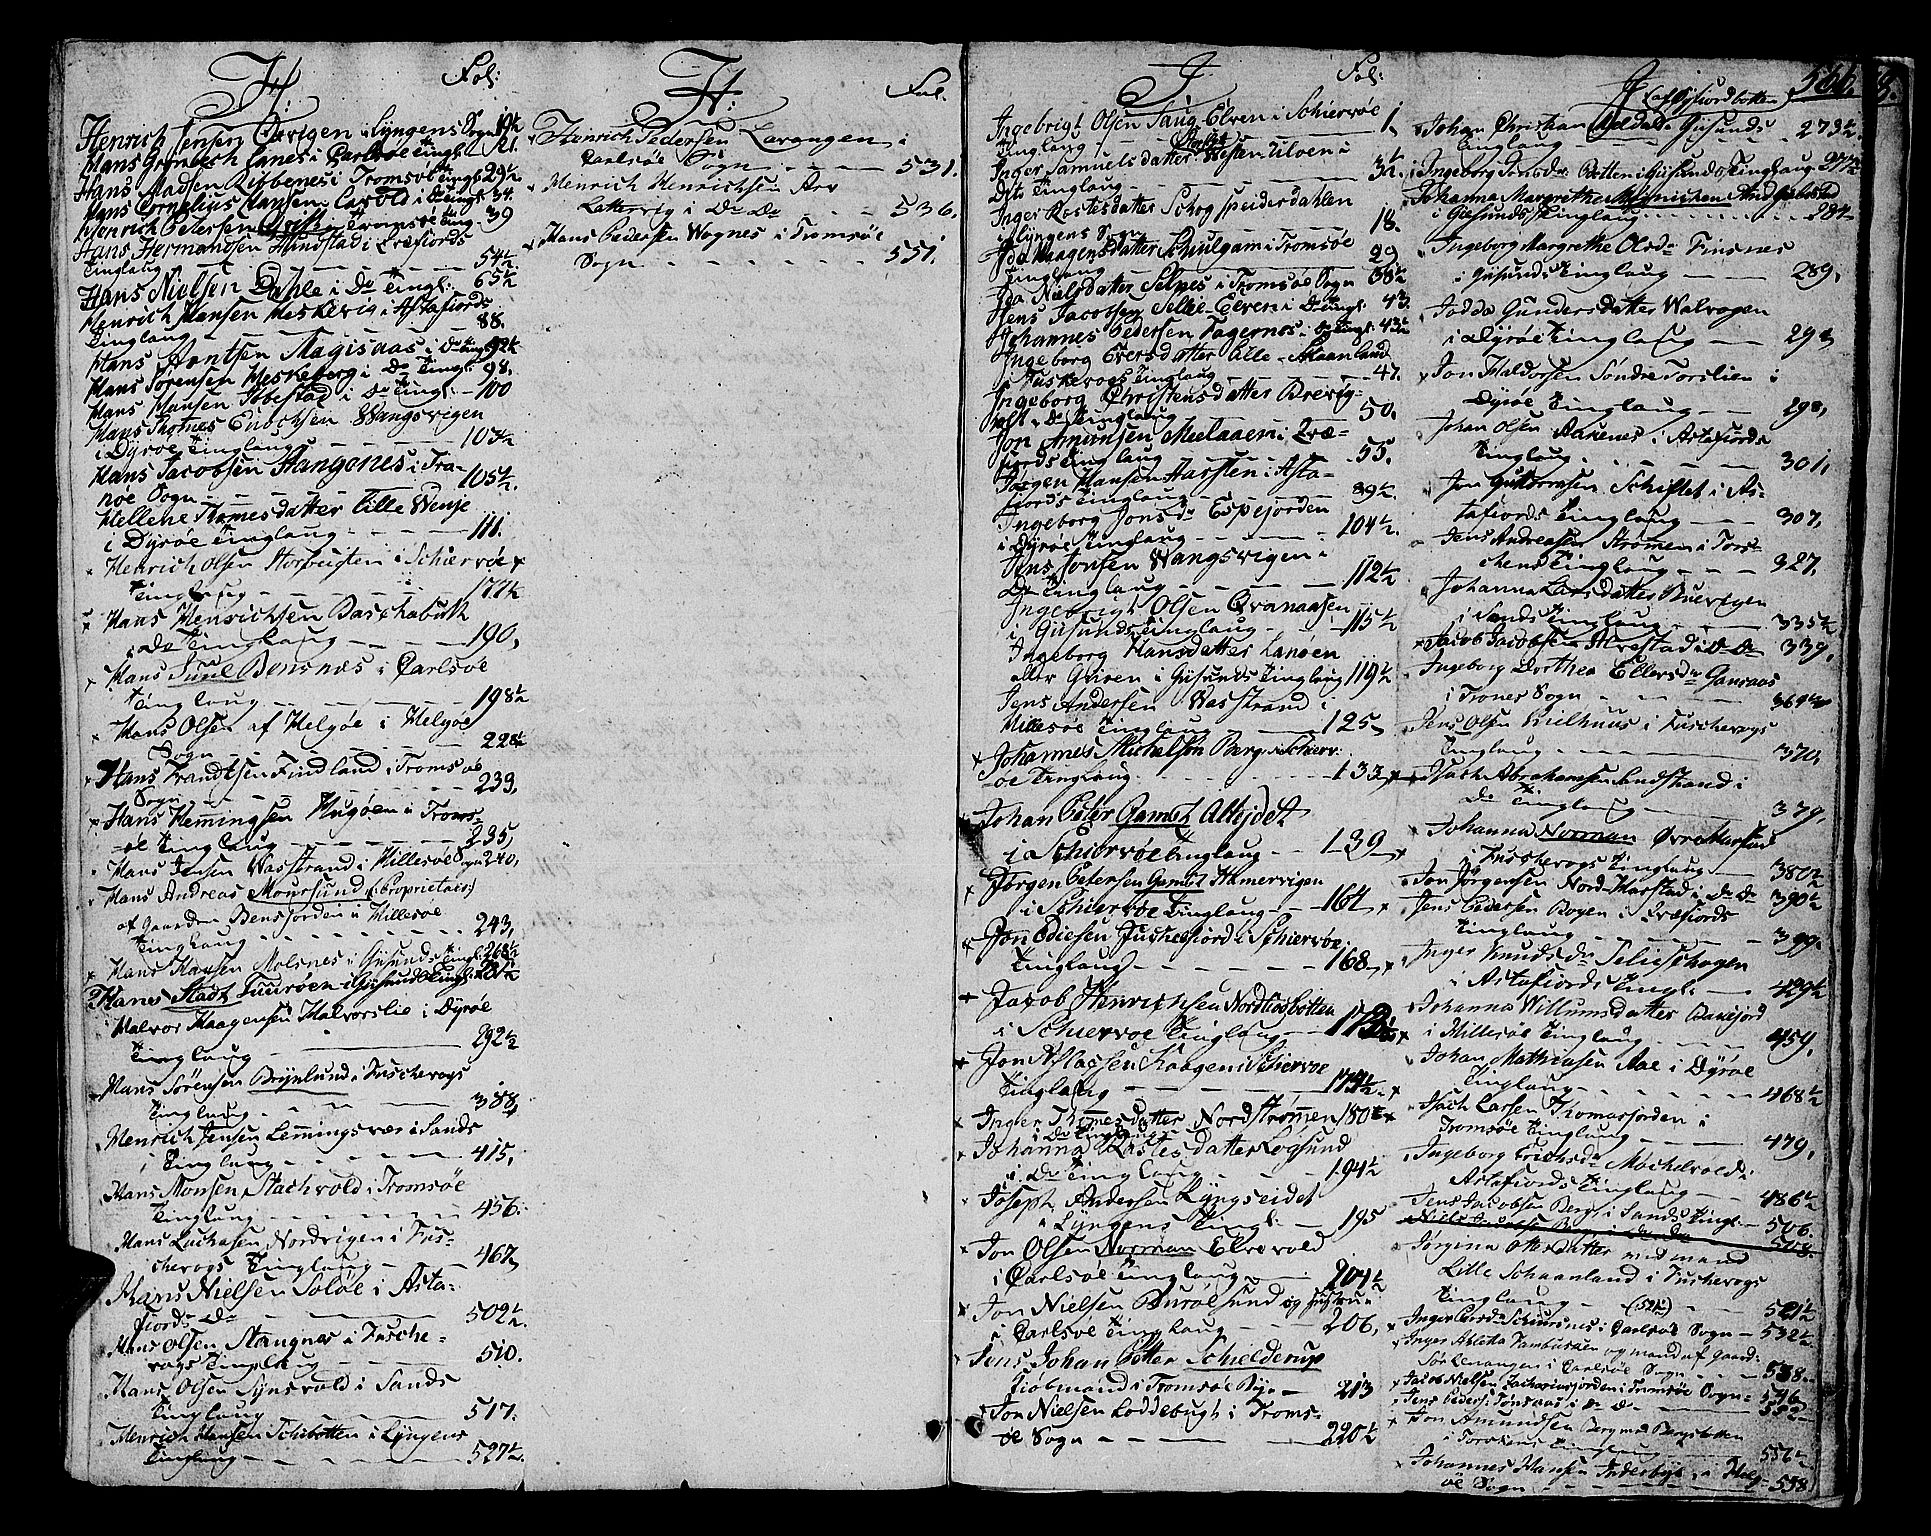 H.
Fol:
Henrich Jensen Ørvigen i Lyngens Sogn 19½
Hans Grønbech Hanes i Carlsøe Tingl.
Hans Madsen Ribbenes i Tromsøe Tingl. 29½
Hans Cornelius Hansen Larvold i D° Tingl. 34.
Henrich Petersen i Tromsøe Ting. 39
Hans Hermandsen Hundstad i Eræfiords
Tinglaug - - - 54½
Hans Nielsen Dahle i D° Tingl: 65½
Henrich Hansen Meskevig i Astafiords
Tinglaug - - - 88.
Hans Arntsen Magisaas i D° Tingl. 92½
Hans Sørensen Meskeberg i D° Tingl: 98.
Hans Hansen Ibbestad i D° Tingl. - 100
Hans Thomes Enochsen Wangsvigen
i Dyrøe Tinglaug - - - 103½
Hans Jacobsen Stangenes i Tra-
nøe Sogn - - - 105½.
Hellene Thomesdatter Lille Wenje
i Dyrøe Tinglaug - - - 111.
Henrich Olsen Storbugten i Schiervøe
Tinglaug - - - 177½
Hans Henrichsen Baschabuth
i D° Tinglaug - - - 190,
Hans Juul Bensnæs i Carlsøe
Tinglaug - - - 198½
Hans Olsen af Helgøe i Helgøe
Sogn - - - 228½
Hans Trandtsen Findland i Tromsøe
Sogn - - - 233,
Hans Hemmingsen Hugøen i Troms-
øe Tinglaug - - - 235,
Hans Jensen Wasstrand i Hillesøe Sogn 240,
Hans Andreas Moursund (Proprietair)
af Gaarden Bensjorden i Hillesøe
Tinglaug - - - 243,
Hans Hansen Molsnes i Gisunds Tingl. 268½
Hans Stadt Tuurøen i Gisunds Tingl. 281½
Halvor Haagensen Halvorslie i Dyrøe
Tinglaug - - - 292½
Hans Sørensen Brynlund i Fuschevogs
Tinglaug - - - 388,
Henrich Jensen Lemmingsvær i Sands
i Tinglaug - - - 415,
Hans Monsen Stachvold i Tromsøe
Tinglaug - - - 456.
Hans Zachasen Nordvigen i Fus-
chevogs Tinglaug - - 467,
Hans Nielsen Soløe i Asta-
fiords D° - - - 502½.
Hans Olsen Stangnæs i Fusche-
vogs Tinglaug - - - 510.
Hans Olsen Synsvold i Sands
Tinglaug - - - 517.
Henrich Hansen Schibotten i Lyngens
Tinglaug - - - 527½.
H:
Fol.
Henrich Pedersen Lavangen i
Carlsøe Sogn - - - 531.
Henrich Henrichsen Arv
Lattervig i D° D° - - - 536,
Hans Pedersen Wognes i Tromsøe
Sogn - - - 551.
J.
Fol:
Ingebrigt Olsen Saug Elven i Schiervøe
Tinglaug - - - 1.
Inger Samuelsdatter Westen Uløen i
Dito Tinglaug - - - 3½
Inger Rastesdatter Schog speiderdahlen
i Lyngens Sogn - - - 18.
Ida Haagensdatter Schulgam i Tromsøe
Tinglaug - - - 29
Ida Nielsdatter Selnes i Tromsøe Sogn 38½
Jens Jacobsen Selle Elven i D° Tingl. 43.
Johannes Pedersen Fagernes i D° Tingl. 43½
Ingeborg Eversdatter Lille Skaanland
i Fuskevogs Tinglaug - - - 47.
Ingeborg Christensdatter Brevig-
D° Tinglaug - - - 50.
Jon Amunsen Melaaen i Eræ-
fiords Tinglaug - - - 55.
Jørgen Hansen Harsten i Asta-
fiords Tinglaug - - - 89½.
Ingeborg Jons D° Espejorden
i Dyrøe Tinglaug - - - 104½.
Jens Jonsen Wangsvigen i
D° Tinglaug - - - 112½
Ingebrigt Olsen Qvanaasen
i Gisunds Tinglaug - - - 115½
Ingeborg Hansdatter Lanøen
aller Guren i Gisunds Tinglaug 119½
Jens Andersen Wasstrand i
Hillesøe Tinglaug - - - 125
Johannes Michelsen Berg i Schierv-
øe Tinglaug - - - 133
Johan Peter Gamst Alteidet
i Schiervøe Tinglaug - - 139
Jørgen Petersen Gamst Hamervigen
i Schiervøe Tinglaug - - 164
Jon Ediesen Juschefiord i Schiervøe
Tinglaug - - - 168
Jacob Henrichsen Nordliosbotten
i Schiervøe Tinglaug - - 173½
Jon Aslachsen Kaagen i Schiervøe
Tinglaug - - - 175½
Inger Thomesdatter Nordstrømen 180½
i D° Tinglaug
Johanna Rastesdatter Løgsund
i D° Tinglaug - - - 194½
Joseph Andersen Lyngseidet
i Lyngens Tingl: - - 195
Jon Olsen Norman Elvevold
i Carlsøe Tinglaug - - - 204½
Jon Nielsen Burøesund og hustru
i Carlsøe Tinglaug - - - 206,
Jens Johan Potter Schielderup
Kiøbmand i Tromsøe Bye - 213
Jon Nielsen Loddebugt i Troms-
øe Sogn - - - 220½
J
566.
Johan Christian Gisunds
Tinglaug - - - 273½
Ingeborg Jensdr Botten i Gisunds Tinglaug 277½
Johanna Margrethe Hinrichsen Andsbostad
i Gisunds Tinglaug - - - 284
Ingeborg Margrethe Olsdr Finsnes
i Gisunds Tinglaug - - - 289,
Jodda Gundersdatter Walvogen
i Dyrøe Tinglaug - - -
Jon Haldorsen Søndre Torslien i
Dyrøe Tinglaug - - - 298,
Johan Olsen Aakenes i Astafiords
Tinglaug - - - 301,
Jon Guttormsen Schiftet i As-
tafiords Tinglaug - - - 307,
Jens Andreassen Strømen i Tors-
chens Tinglaug - - - 327.
Johanna Larsdatter Buevigen
i Sands Tinglaug - - - 335½
Jacob Jacobsen Alvestad i D° D° 339,
Ingeborg Dorthea Ellersdr Gausaas
i Trones Sogn - - - 364½
Jens Olsen Kielhuus i Fuschevogs
Tinglaug - - - 370,
Isach Abrahamsen Sandstrand i
D° Tinglaug - - - 379,
Johanna Norman Øvre Harstad
i Fuschevogs Tinglaug - - 380½
Jon Jørgensen Nord Harstad i D° D° 390½
Jens Pedersen Bogen i Eræfiords
Tinglaug - - - 399.
Inger Knudsdr Seljeschogen
i Astafiords Tingl. - - - 429½
Johanna Willumsdatter Bakejord
i Hillesøe Tinglaug - - - 459,
Johan Mathiasen Aae i Dyrøe
Tinglaug - - - 468½
Isach Larsen Thomasjorden i
Tromsøe Tinglaug - - - 479,
Ingeborg Erichsdr Møchelvold i
Astafiords Tinglaug - - 486½
Jens Jacobsen Berg i Sands Tingl. - 506.
Niels Jacobsen Berg i 508.
Jørgina Ottersdatter med mand
Lille Schaanland i Fuschevogs
Tinglaug - - (521½) - - 521½
Inger Schursnes i Carlsøe Sogn - 532½
Inger Aletta og mand af Gaard
i Carlsøe Sogn - - - 538.
Jacob Nielsen Zachariasjorden i Tromsøe Sogn - 546
Jens Peders: Tønsaas i D° D° - - 552
Jon Amundsen Berg med Bergsbotten
i Torskens Tinglaug - - - 556
Johannes Hansen Inderbye i Helg-
øe Sogn - - - 558